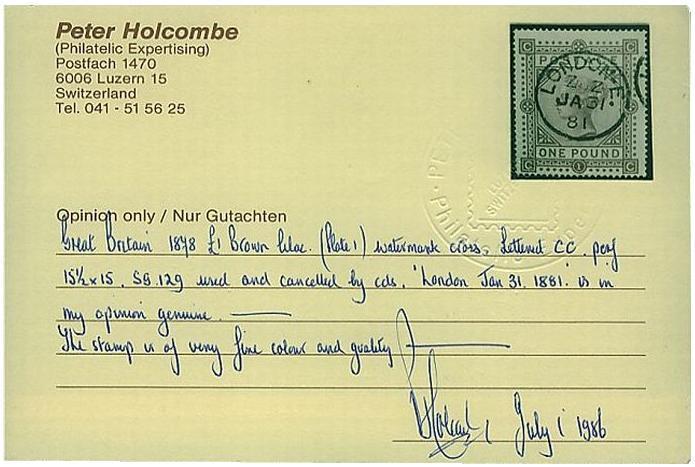 Peter Holcombe
(Philatelic Expertising)
Postfach 1470
6006 Luzern 15
Switzerland
Tel. 041 - 51 56 25
LONDON. E.
JA 31
81
C C
ONE POUND
C 1 C
Opinion only / Nur Gutachten
Great Britain 1878 £1 Brown lilac. (Plate 1) watermark cross. Lettered CC. perf
15½ x 15. SG. 129 used and cancelled by cds. 'London Jan 31. 1881. is in
my opinion genuine.
The stamp is of very fine colour and quality
July 1 1986